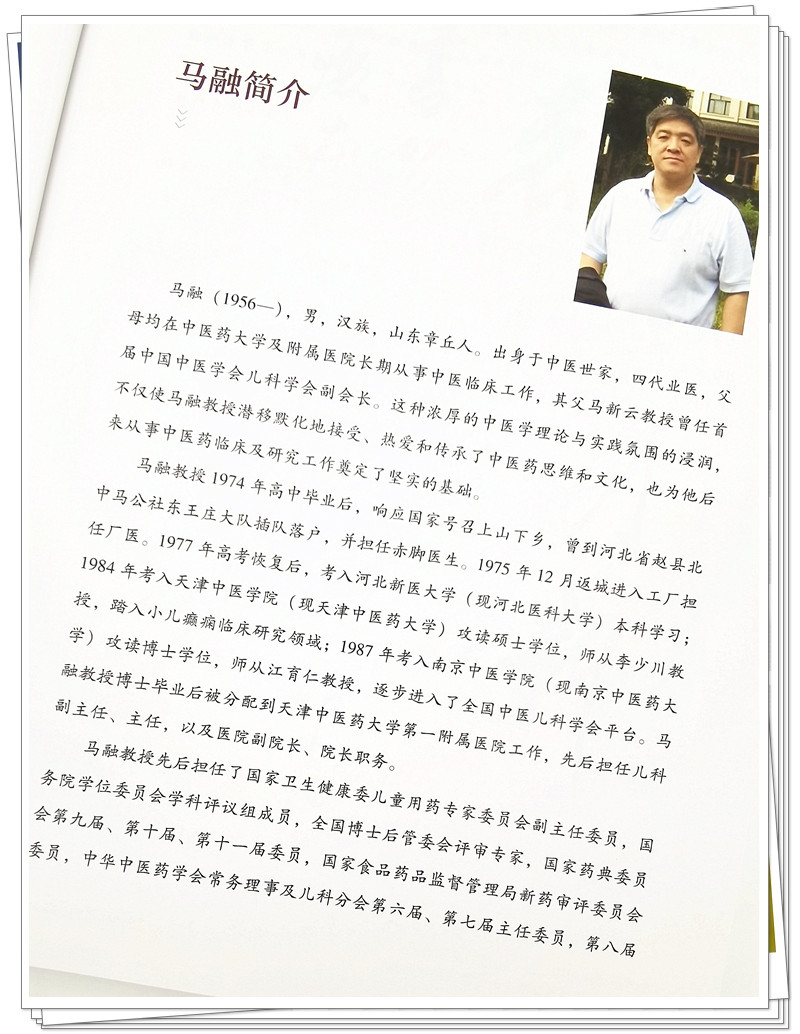 马融简介
马融（1956—），男，汉族，山东章丘人。出身于中医世家，四代业医，父
母均在中医药大学及附属医院长期从事中医临床工作，其父马新云教授曾任首
届中国中医学会儿科学会副会长。这种浓厚的中医学理论与实践氛围的浸润，
不仅使马融教授潜移默化地接受、热爱和传承了中医药思维和文化，也为他后
来从事中医药临床及研究工作奠定了坚实的基础。
马融教授1974年高中毕业后，响应国家号召上山下乡，曾到河北省赵县北
中马公社东王庄大队插队落户，并担任赤脚医生。1975年12月返城进入工厂担
任厂医。1977年高考恢复后，考入河北新医大学（现河北医科大学）本科学习；
1984年考入天津中医学院（现天津中医药大学）攻读硕士学位，师从李少川教
授，踏入小儿癫痫临床研究领域；1987年考入南京中医学院（现南京中医药大
学）攻读博士学位，师从江育仁教授，逐步进入了全国中医儿科学会平台。马
融教授博士毕业后被分配到天津中医药大学第一附属医院工作，先后担任儿科
副主任、主任，以及医院副院长、院长职务。
马融教授先后担任了国家卫生健康委儿童用药专家委员会副主任委员，国
务院学位委员会学科评议组成员，全国博士后管委会评审专家，国家药典委员
会第九届、第十届、第十一届委员，国家食品药品监督管理局新药审评委员会
委员，中华中医药学会常务理事及儿科分会第六届、第七届主任委员，第八届